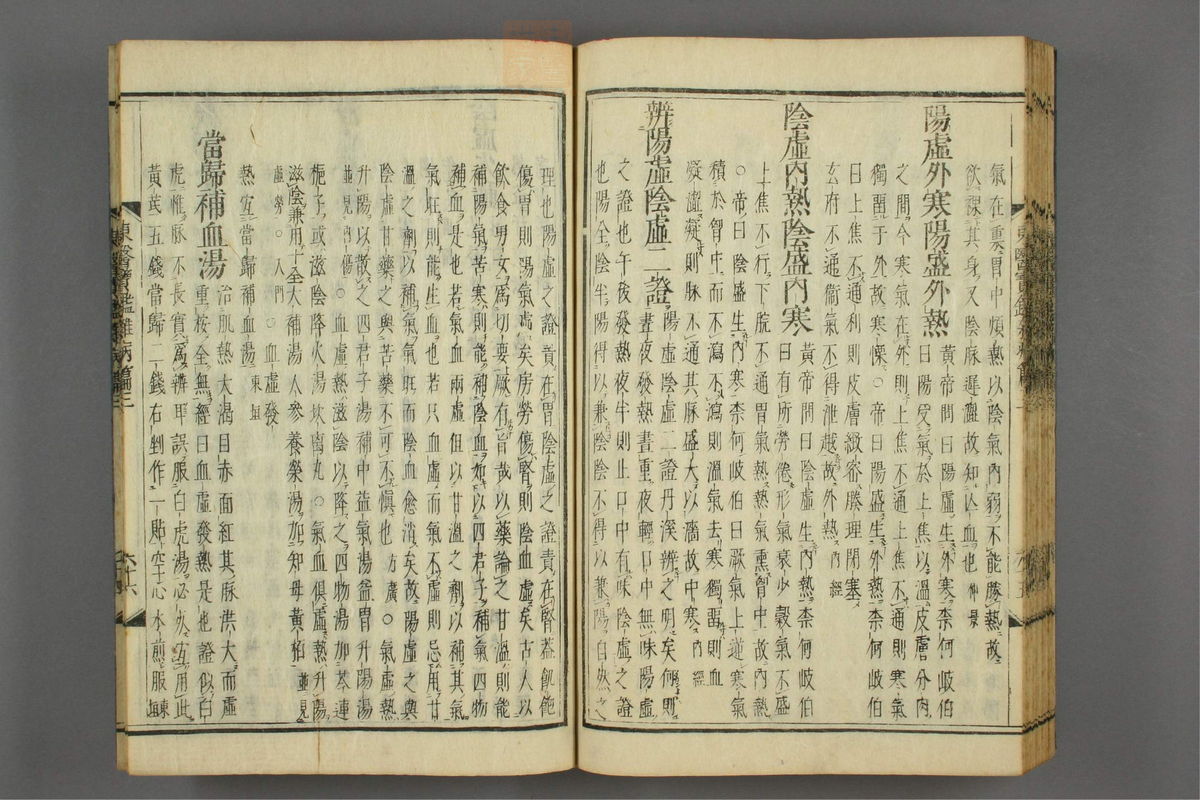 氣在裏胃中煩熱以陰氣內弱不能勝熱故
欲裸其身又陰脉遲澁故知亾血也仲景
陽虛外寒陽盛外熱
黃帝問曰陽虛生外寒柰何歧伯
曰陽受氣於上焦以溫皮膚分肉
之間今寒氣在外則上焦不通上焦不通則寒氣
獨留于外故寒慄○帝曰陽盛生外熱柰何歧伯
曰上焦不通利則皮膚緻密腠理閉塞
玄府不通衞氣不得泄越故外熱內經
陰虛內熱陰盛內寒
黃帝問曰陰虛生內熱柰何歧伯
曰有所勞倦形氣衰少穀氣不盛
上焦不行下脘不通胃氣熱熱氣熏胷中故內熱
○帝曰陰盛生內寒柰何歧伯曰厥氣上逆寒氣
積於胷中而不瀉不瀉則溫氣去寒獨留則血
凝澁凝則脉不通其脉盛大以濇故中寒內經
辨陽虛陰虛二證
陽虛陰虛二證丹溪辨之明矣何則
晝夜發熱晝重夜輕口中無味陽虛
之證也午後發熱夜半則止口中有味陰虛之證
也陽全陰半陽得以兼陰陰不得以兼陽自然之
理也陽虛之證責在胃陰虛之證責在腎蓋飢飽
傷胃則陽氣虛矣房勞傷腎則陰血虛矣古人以
飲食男女爲切要厥有旨哉以藥論之甘溫則能
補陽氣苦寒則能補陰血如以四君子補氣四物
補血是也若氣血兩虛但以甘溫之劑以補其氣
氣旺則能生血也若只血虛而氣不虛則忌用甘
溫之劑以補氣氣旺而陰血愈消矣故陽虛之與
陰虛甘藥之與苦藥不可不愼也方廣○氣虛熱
升陽以散之四君子湯補中益氣湯益胃升陽湯
並見內傷○血虛熱滋陰以降之四物湯加芩連
梔子或滋陰降火湯坎离丸○氣血俱虛熱升陽
滋陰兼用十全大補湯人參養榮湯加知母黃栢並見
虛勞○入門○血虛發
熱宜當歸補血湯東垣
當歸補血湯
治肌熱大渴目赤面紅其脉洪大而虛
重按全無經曰血虛發熱是也證似白
虎惟脉不長實爲辨耳誤服白虎湯必死宜用此
黃芪五錢當歸二錢右剉作一貼空心水煎服東垣
東醫寶鑑雜病篇三
六十六